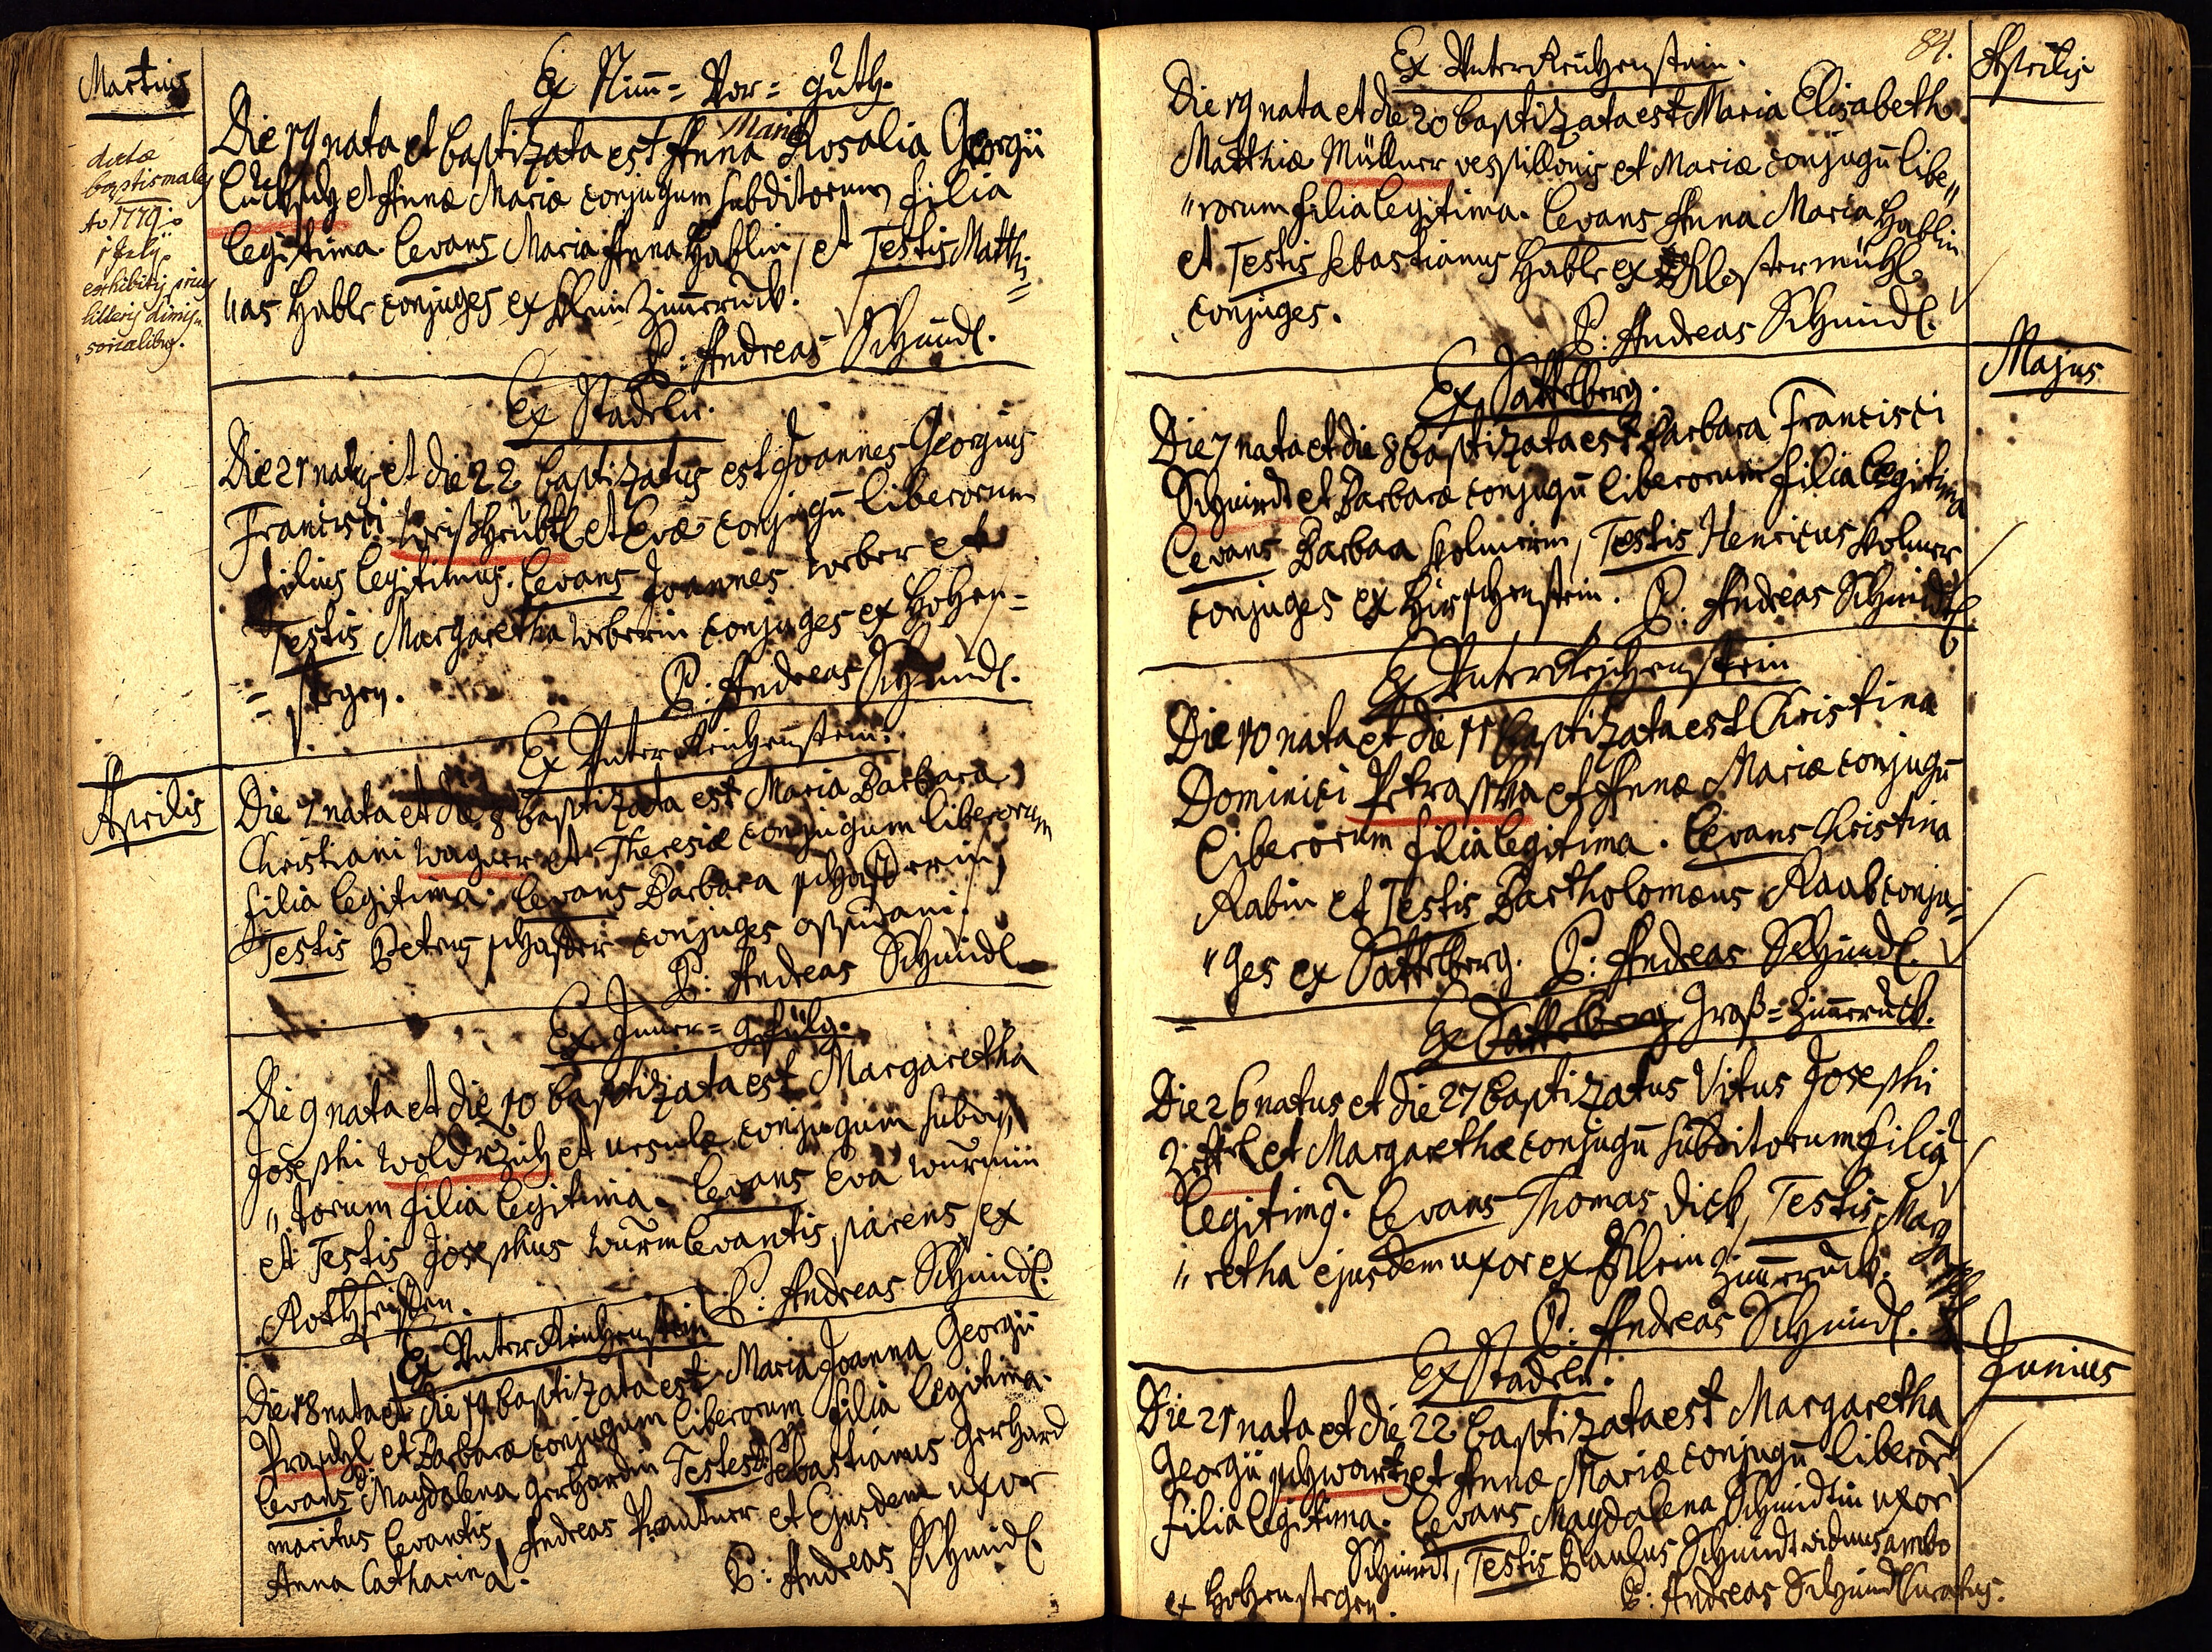 Martius
datæ
baptismales
Ao 1779.
exhibitis prius
litteris dimis„
„sorialibus.
Ex Nim̄= Vor= guth.
Die 19 nata et baptizata est Anna Maria Rosalia Georgii
et Annæ Mariæ conjugum subditorum filia
legitima. Levans Maria Anna Hablin, et Testis Matthi=
„as Habl conjuges ex Klein Zim̄eruck.
P: Andreas Schmidl.
Ex Stadeln.
Die 21 natus et die 22 baptizatus est Joannes Georgius
Francisci et Evæ conjugū liberorum
filius legitimus. Levans Joannes Weber et
Testis Margaretha Weberin conjuges ex Hohen=
=stegen.
P: Andreas Schmidl.
Ex Unterreichenstein.
Aprilis
Die 7 nata et die 8 baptizata est Maria Barbara
Christiani Wagner et Theresiæ conjugum liberorum
filia legitima. Levans Barbara
Testis Petrus conjuges
P: Andreas Schmidl
Ex Inner= gefild.
Die 9 nata et die 10 baptizata est Margaretha
Josephi Woldrzich et Ursulæ conjugum subdi„
„torum filia legitima. Levans Eva Wurmin
et Testis Josephus Wurm levantis parens ex
P: Andreas Schmidl.
Ex Unterreichenstein
Die 18 nata et die 19 baptizata est Maria Joanna Georgii
et Barbaræ conjugum liberorum filia legitima.
Levans Magdalena Gerhardin Testes Sebastianus Gerhard
maritus levantis, Andreas Prantner et Ejusdem uxor
Anna Catharina.
P: Andreas Schmidl
84.
Aprilis
Ex Unterreichenstein.
Die 19 nata et die 20 baptizata est Maria Elisabeth
Matthiæ Müllner vespillonis et Mariæ conjugū libe„
„rorum filia legitima. Levans Anna Maria Hablin
et Testis Sebastianus Habl ex Klostermühl
conjuges.
P: Andreas Schmidl.
Majus
Ex Sattelberg.
Die 7 nata et die 8 baptizata est Barbara Francisci
Schmidt et Barbaræ conjugū liberorum filia legitima
Levans Barbara Testis Henricus
conjuges ex Hirschenstein. P: Andreas Schmidl
Ex Unterreichenstein
Die 10 nata et die 11 baptizata est Christina
Dominici Petraschka et Annæ Mariæ conjugū
liberorum filia legitima. Levans Christina
Rabin et Testis Bartholomæus Raab conju=
„ges ex Sattelberg. P: Andreas Schmidl.
Ex Sattelberg Groß= Zim̄eruck.
Die 26 natus et die 27 baptizatus Vitus Josephi
et Margarethæ conjugū subditorum filius
legitimus. Levans Thomas Dick, Testis Marga
„retha ejusdem uxor ex Klein Zim̄eruck.
P: Andreas Schmidl.
Junius
Ex Stadeln.
Die 21 nata et die 22 baptizata est Margaretha
Georgii Schwartz et Annæ Mariæ conjugū liberor̄
filia legitima. Levans Magdalena Schmidtin uxor
Schmidt, Testis Paulus Schmidt viduus ambo
ex Hohenstegen.
P: Andreas Schmidl Curatus.